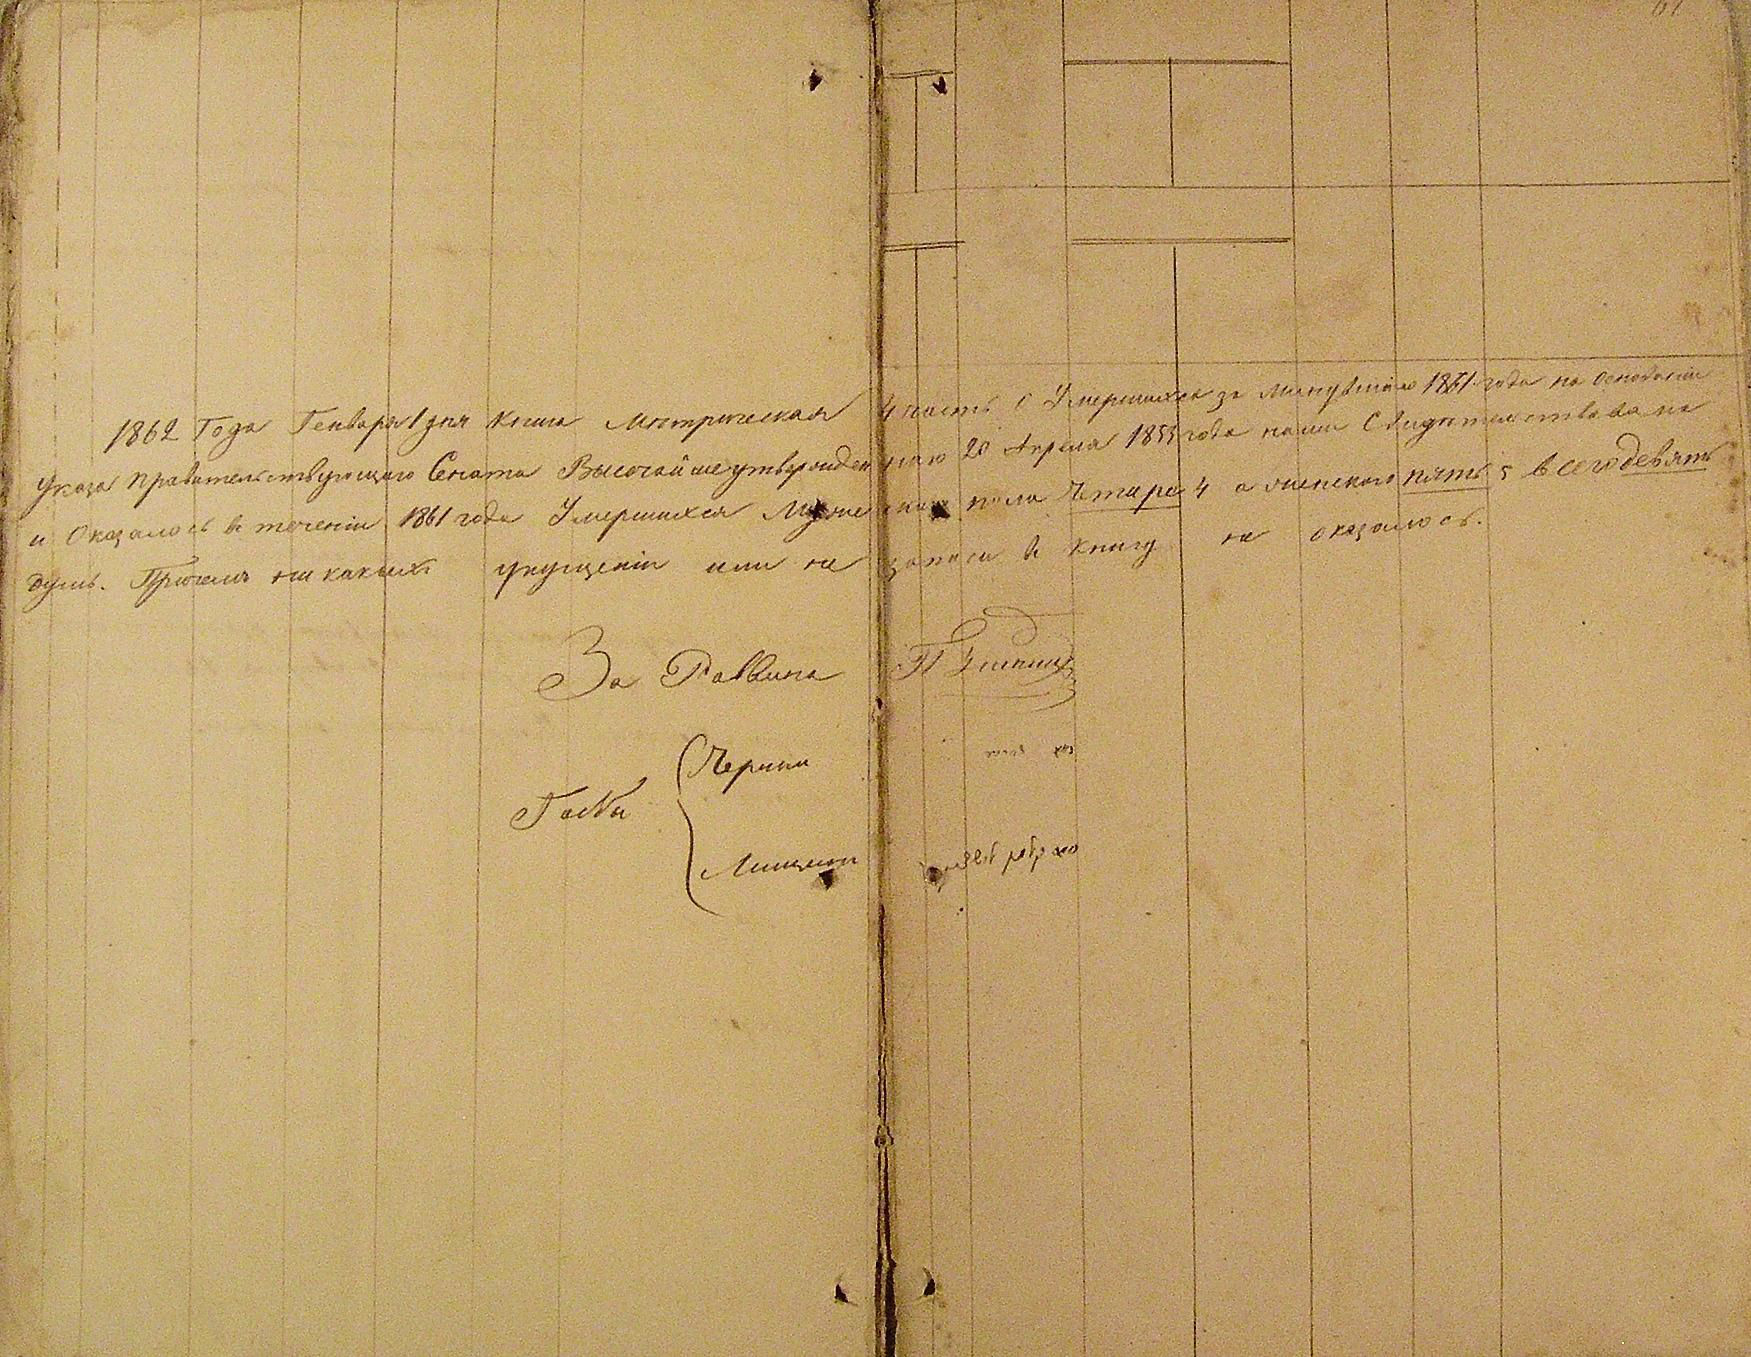 1862 Года Генваря 1 дня Книга Метрическая Часть о Умершихся за минувшаго 1861 года на основании
Указа Правительствующаго Сената Высочайше утвержденнаго 20 Апреля 1853 года нами Свидетельствована
и Оказалось в течении 1861 года Умершихся Мужескаго пола Четыре 4 а женскаго пять 5 всего девять
душ. Причем ни каких упущений или не записи в книгу не оказалось.
За Раввина
Габы